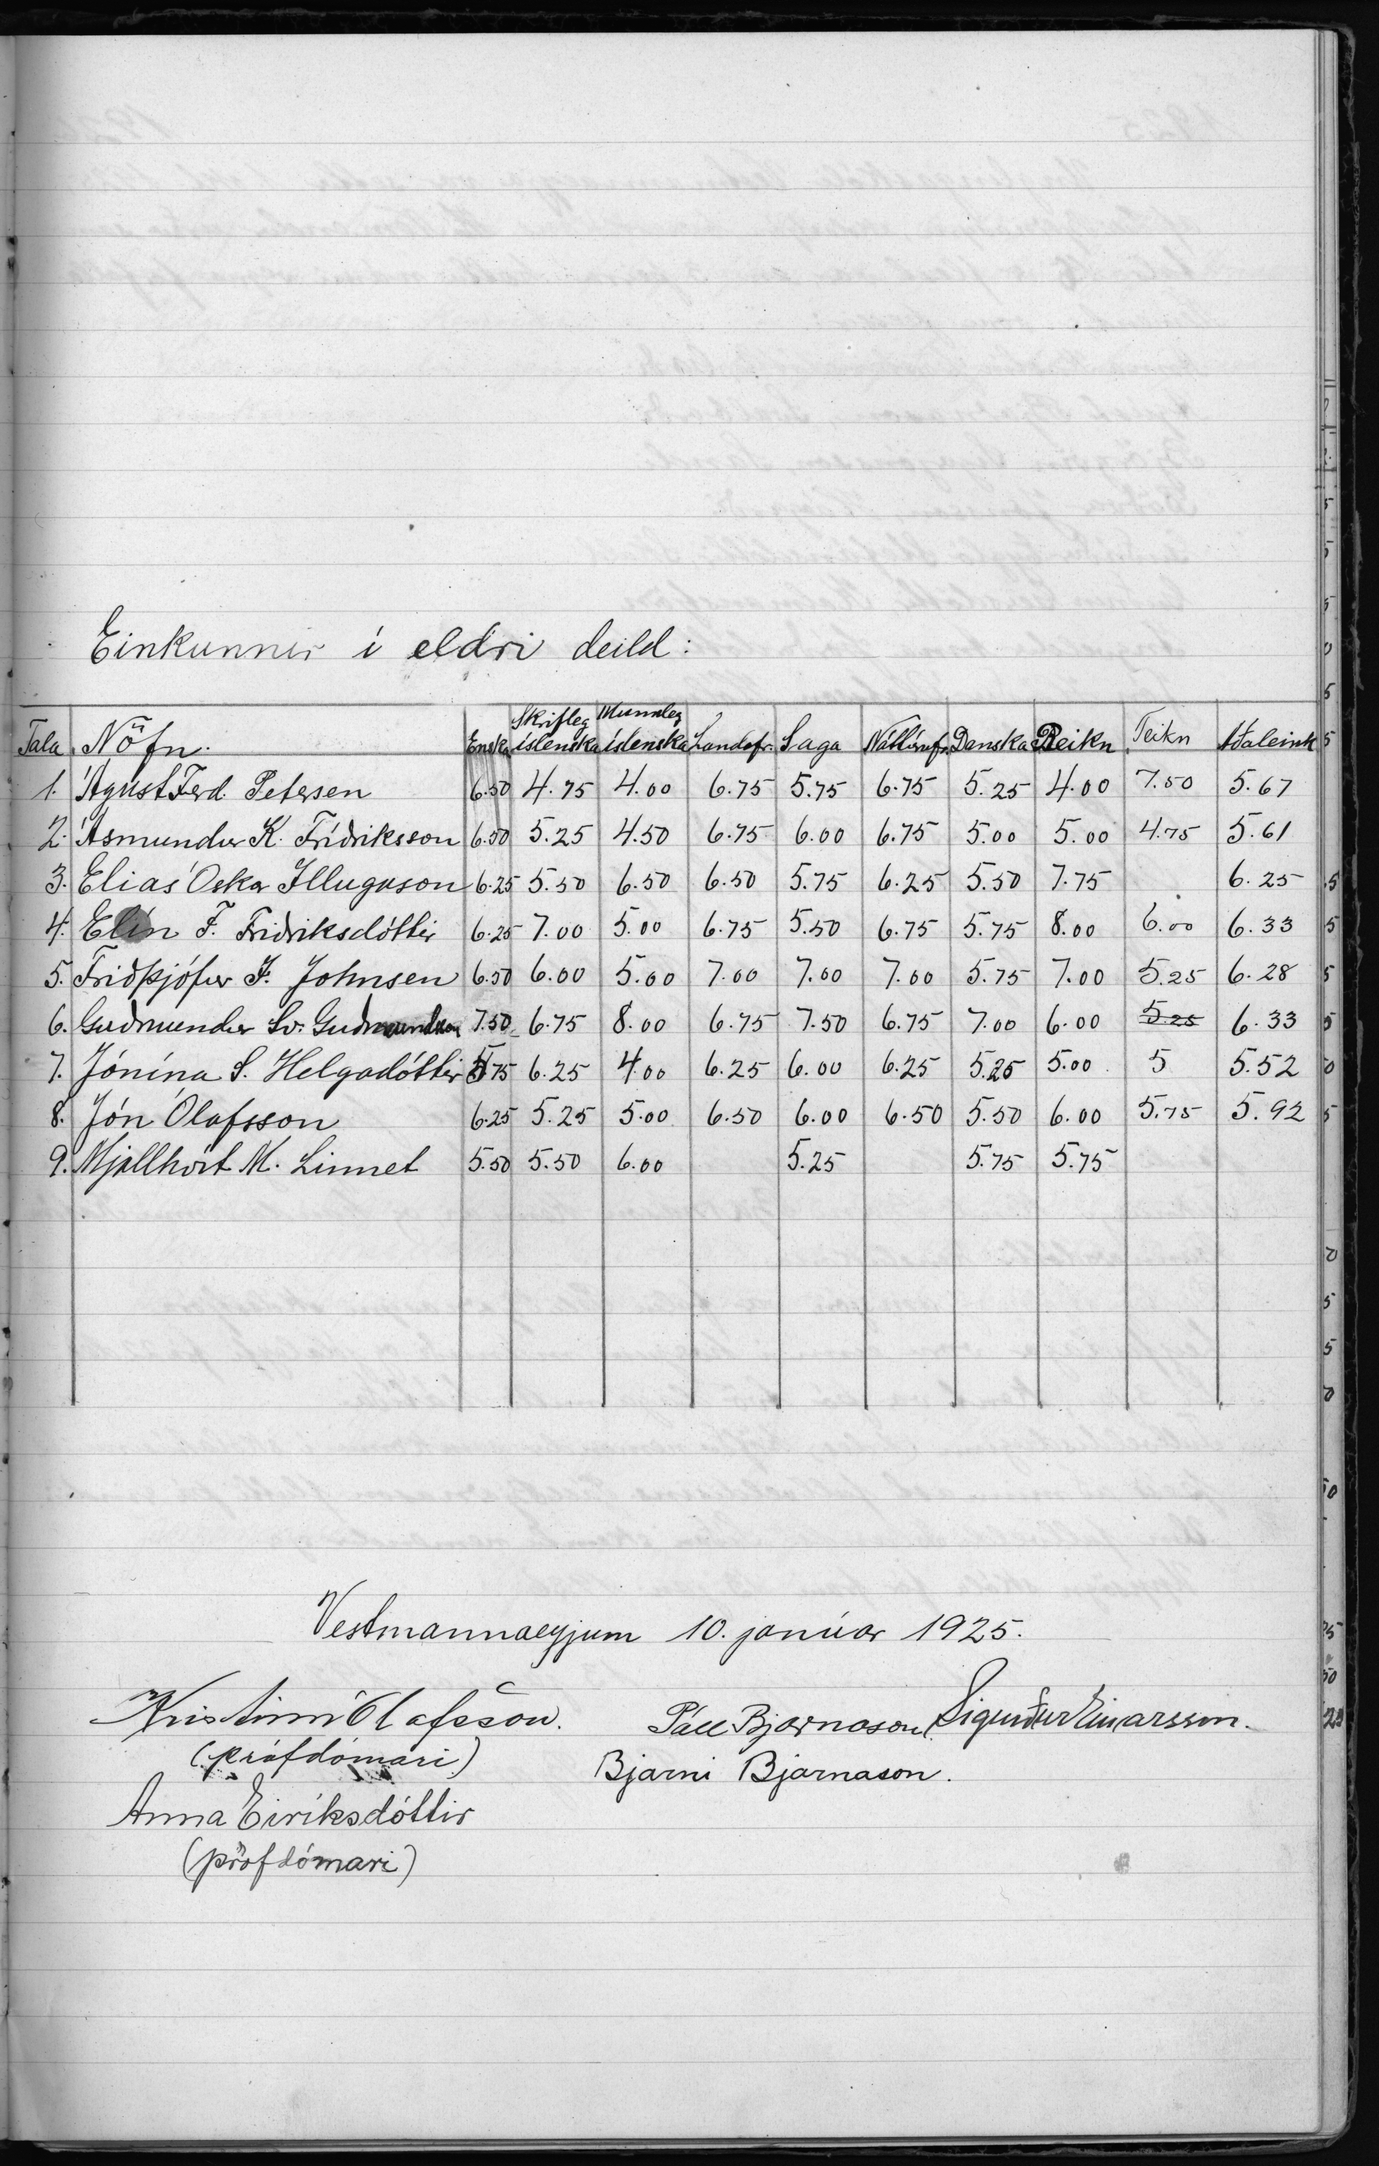 Einkunnir í eldri deild:
Tala Nöfn. Enska Skrifleg íslenska Munnleg íslenska Landafr. Saga Náttúrufr. Danska Reikn Teikn Aðaleink
1. Ágúst Ferd. Petersen 6.50 4.75 4.00 6.75 5.75 6.75 5.25 4.00 7.50 5.67
2. Ásmundur K. Friðriksson 6.50 5.25 4.50 6.75 6.00 6.75 5.00 5.00 4.75 5.61
3. Elias Oskar Illugason 6.25 5.50 6.50 6.50 5.75 6.25 5.50 7.75 6.25
4. Elín F. Friðriksdóttir 6.25 7.00 5.00 6.75 5.50 6.75 5.75 8.00 6.00 6.33
5. Friðþjófur F. Johnsen 6.50 6.00 5.00 7.00 7.00 7.00 5.75 7.00 5.25 6.28
6. Guðmundur Sv. Guðmundsson 7.50 6.75 8.00 6.75 7.50 6.75 7.00 6.00 5.25 6.33
7. Jónína S. Helgadóttir 5.75 6.25 4.00 6.25 6.00 6.25 5.25 5.00 5 5.52
8. Jón Ólafsson 6.25 5.25 5.00 6.50 6.00 6.50 5.50 6.00 5.75 5.92
9. Mjallhvít M. Linnet 5.50 5.50 6.00 5.25 5.75 5.75
Vestmannaeyjum 10. janúar 1925.
Kristinn Ólafsson. Páll Bjarnason Sigurður Einarsson.
(prófdómari) Bjarni Bjarnason.
Anna Eiríksdóttir
(prófdómari)